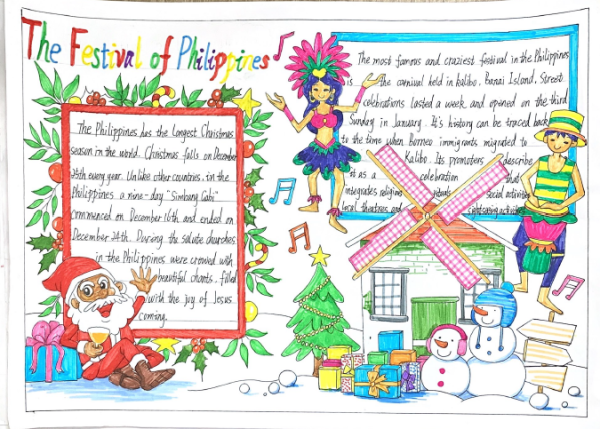 The Festival of Philippines
The Philippines has the longest Christmas
season in the world. Christmas falls on December
25th every year. Unlike other countries, in the
Philippines a nine-day "Simbang Gabi"
commenced on December 16th and ended on
December 24th. During the salute churches
in the Philippines were crowded with
beautiful chants, filled
with the joy of Jesus
coming.
The most famous and craziest festival in the Philippines
is the carnival held in kalibo, Panai Island. Street
celebrations lasted a week and opened on the third
Sunday in January. It's history can be traced back
to the time when Borneo immigrants migrated to
Kalibo. Its promoters describe
it as a celebration that
integrates religion rituals social activities
local theatres and sightseeing activities